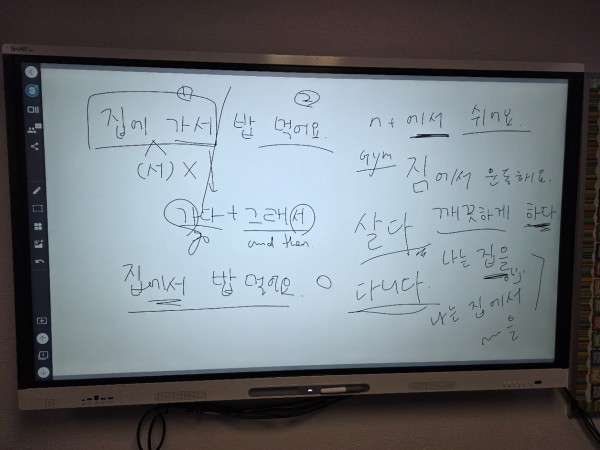 SMART
① ②
집에 가서 / 밥 먹어요.
(서) X
가다 + 그래서
go and then
집에서 밥 먹어요. O
n + 에서 쉬어요.
Gym 짐에서 운동해요.
살다 깨끗하게 하다
나는 집을
다니다.
나는 집에서
~을